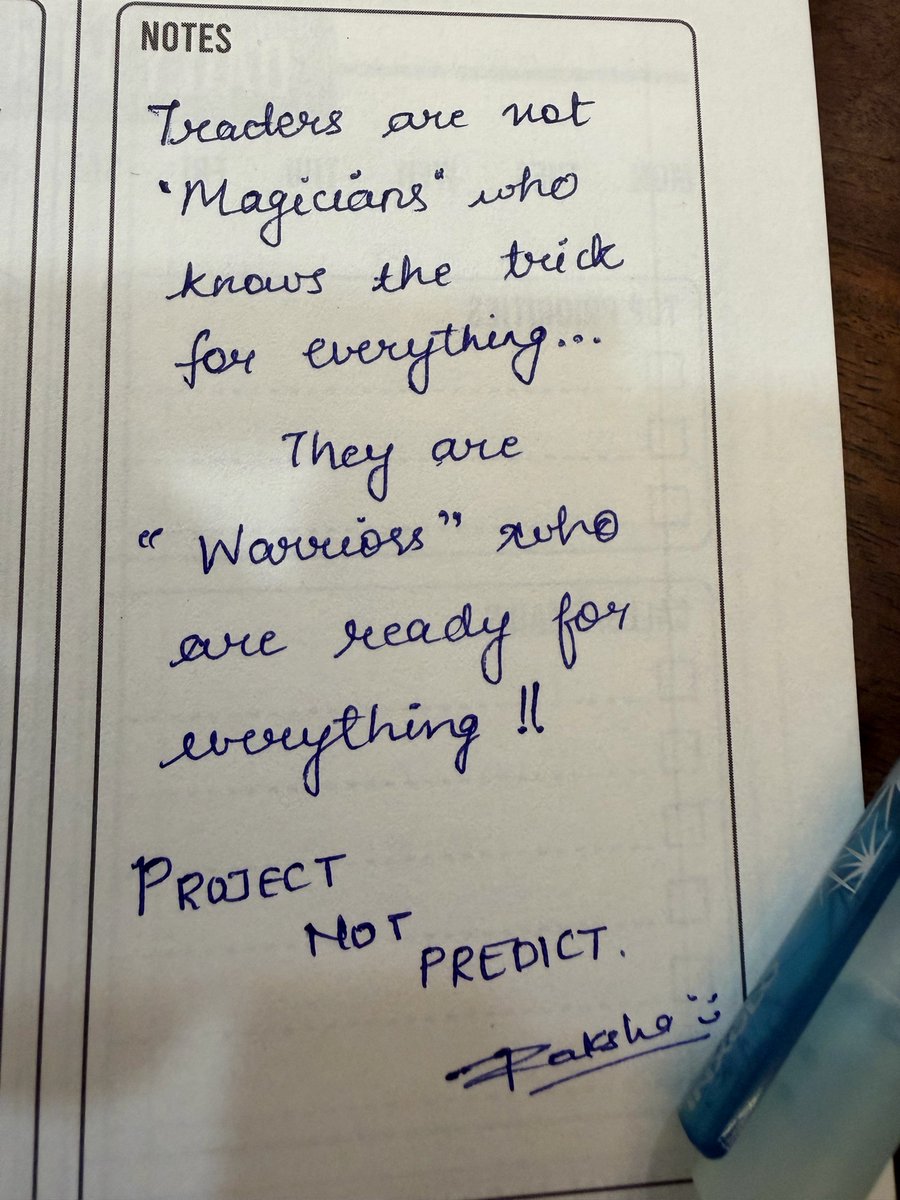 NOTES
Traders are not
"Magicians" who
knows the trick
for everything...
They are
"Warriors" who
are ready for
everything !!
PROJECT
NOT
PREDICT.
Raksha